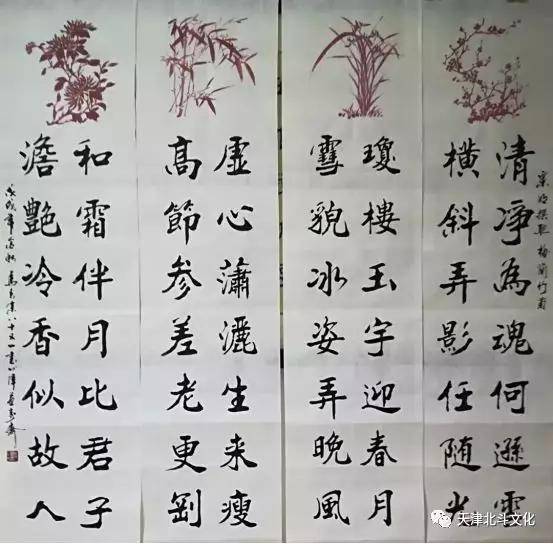 梅蘭竹菊
清淨為魂何遜雪
橫斜弄影任隨
瓊樓玉宇迎春月
雪貌冰姿弄晚風
虛心瀟灑生来瘦
高節参差老更
和霜伴月比君子
澹艷冷香似故人
戊戌年 八十又一書
天津北斗文化